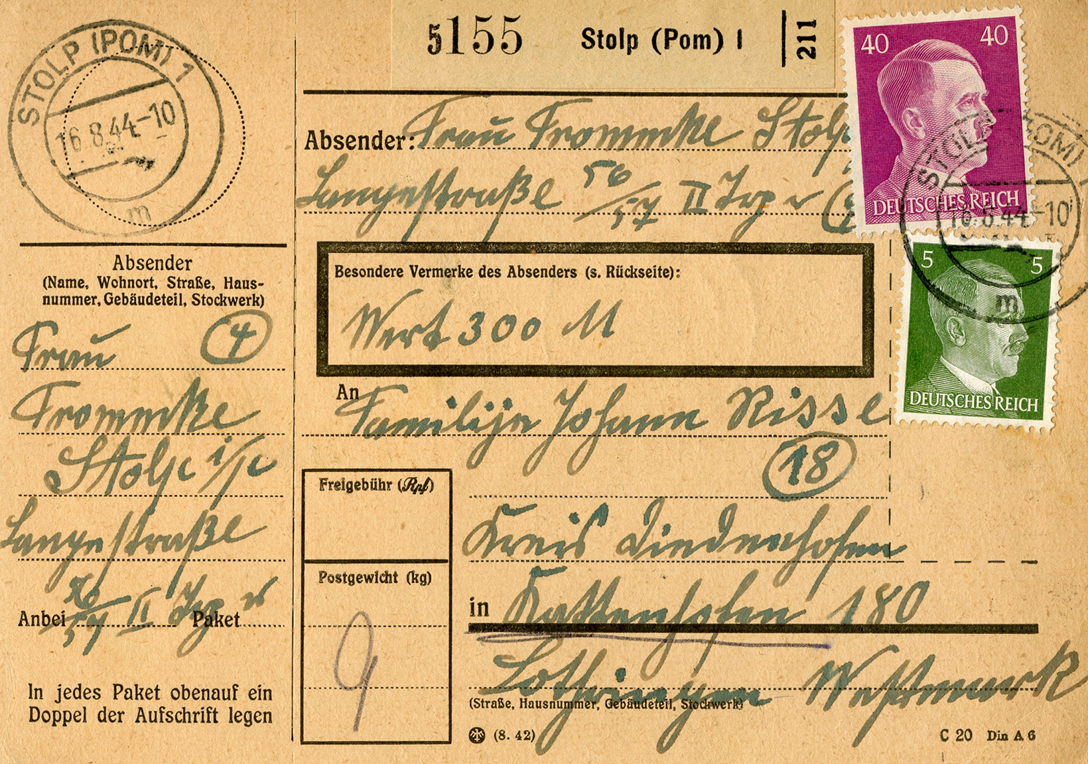 STOLP (POM) 1
16.8.44.-10
m
5155 Stolp (Pom) 1 211
40 40
DEUTSCHES REICH
STOLP (POM)
16.8.44.-10
m
5 5
DEUTSCHES REICH
Absender: Frau Frommke Stolp
Langestraße 56/57 II Trp r
Absender
(Name, Wohnort, Straße, Haus-
nummer, Gebäudeteil, Stockwerk)
Frau (4)
Frommke
Stolp i/P
Langestraße
56/57 II Trp r
Anbei Paket
In jedes Paket obenauf ein
Doppel der Aufschrift legen
Besondere Vermerke des Absenders (s. Rückseite):
Wert 300 M
An Familije Johann Risse
(18)
Freigebühr (Rpf)
Kreis Diedenhofen
Postgewicht (kg)
9
in Kattenhofen 180
Lothringen Westmark
(Straße, Hausnummer, Gebäudeteil, Stockwerk)
(8. 42)
C 20 Din A 6